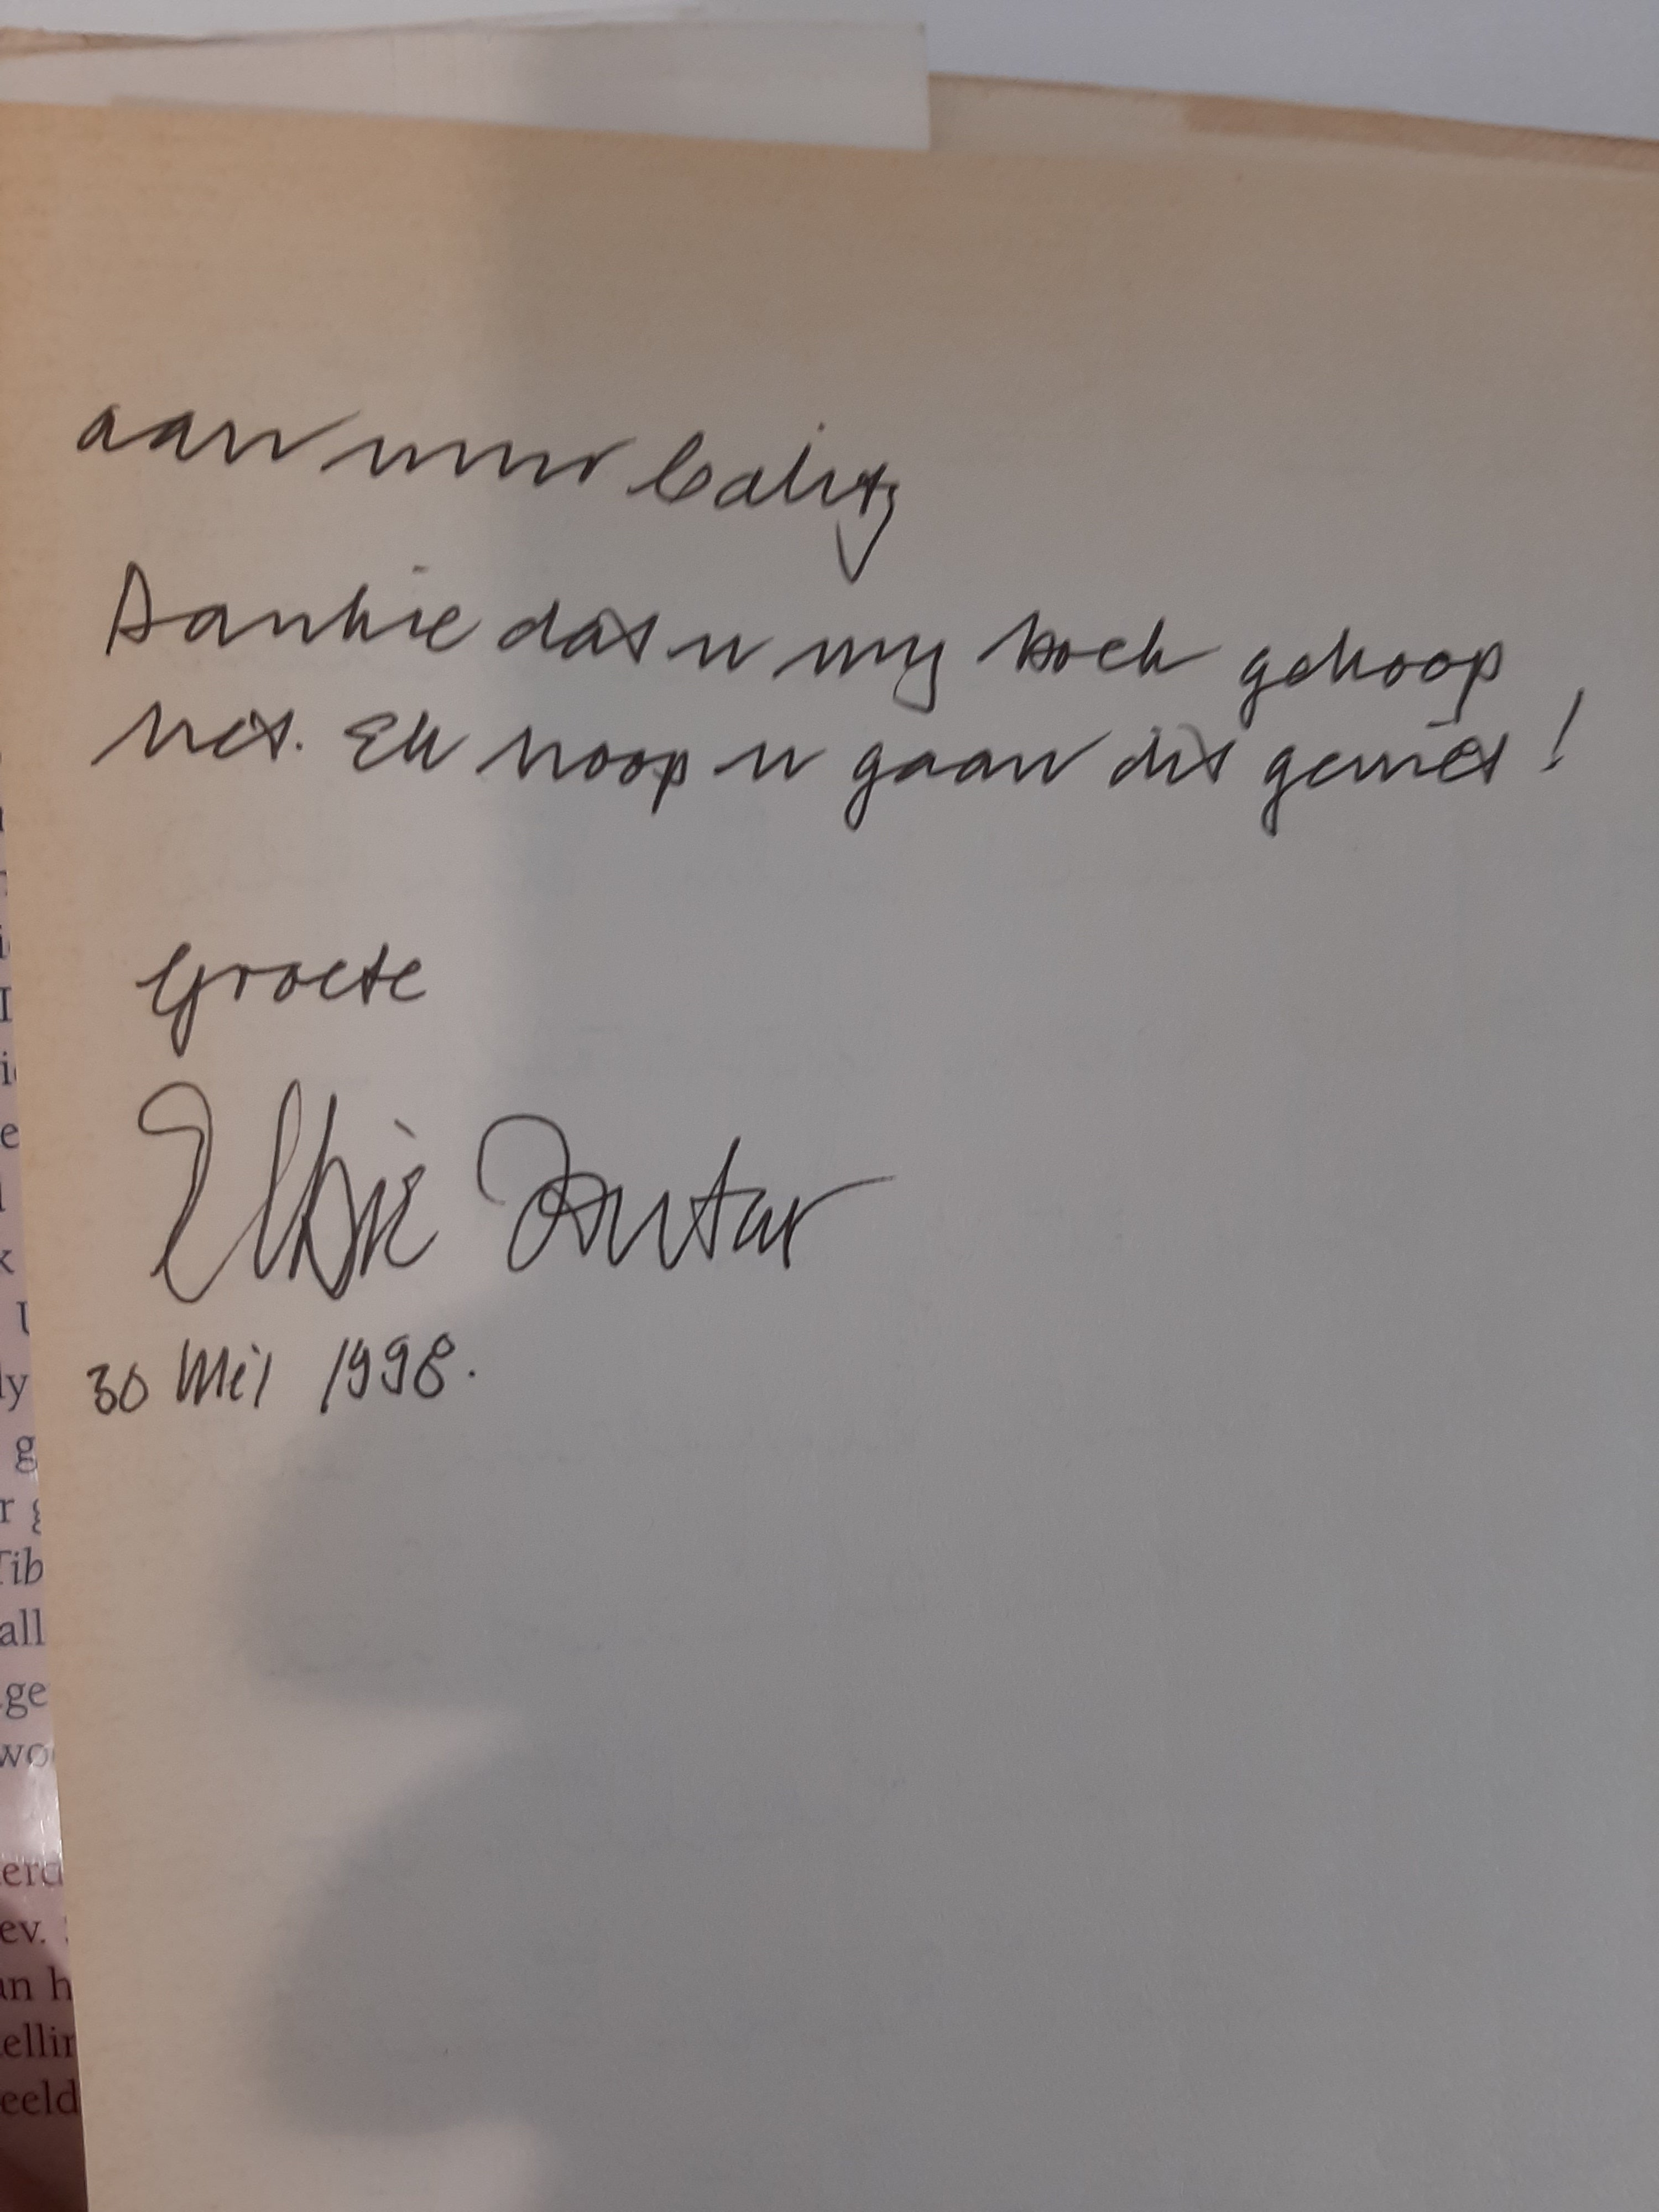 aan mnr Calitz
Dankie dat u my boek gekoop
het. Ek hoop u gaan dit geniet!
Groete
30 Mei 1998.
ie
e
k
ly
g
r g
Tib
all
ge
wo
ev.
an h
ellin
eeld